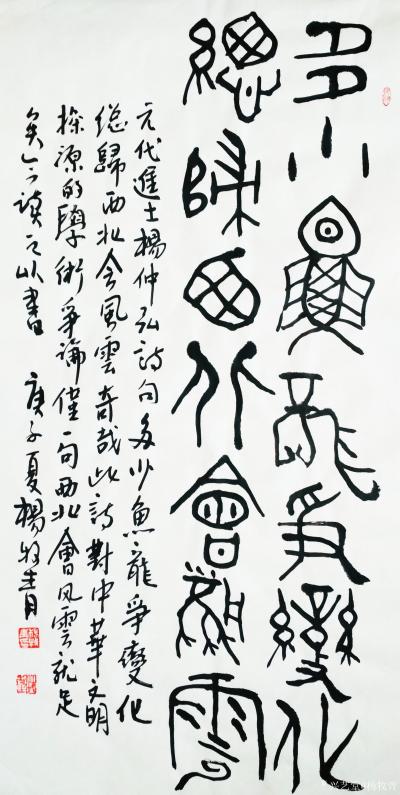 多少魚龍爭變化
總歸西北會風雲
元代進士楊仲弘詩句多少魚龍爭變化
總歸西北會風雲奇哉此詩對中華文明
探源的學術爭論僅一句西北會風雲就足
矣今讀之以書 庚子夏楊牧青